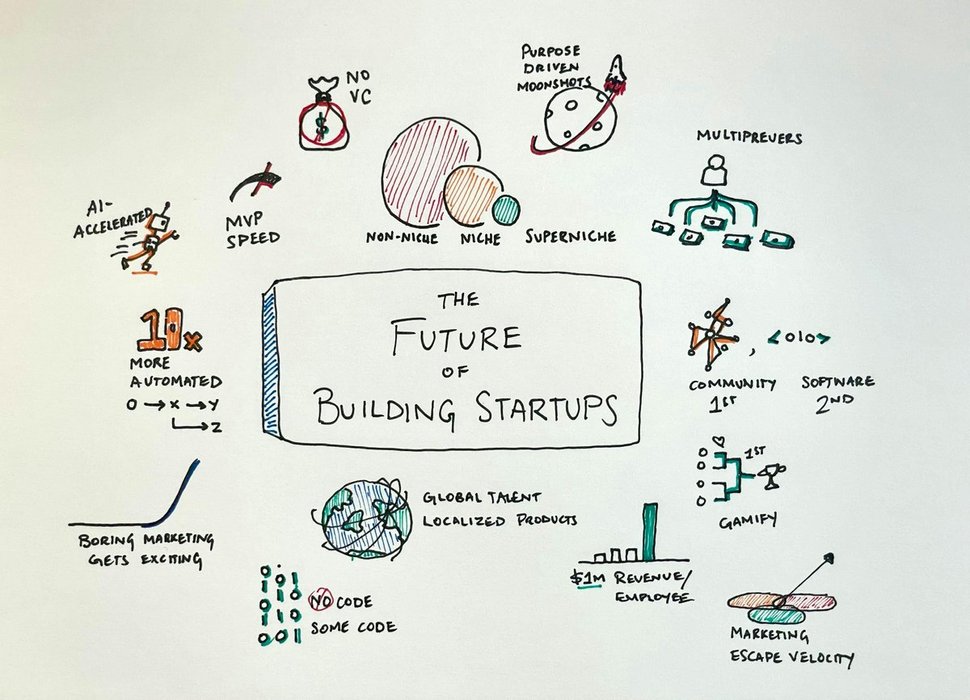 THE
FUTURE
OF
BUILDING STARTUPS
NO
VC
PURPOSE
DRIVEN
MOONSHOTS
MULTIPREUERS
AI-
ACCELERATED
MVP
SPEED
NON-NICHE NICHE SUPERNICHE
10x
MORE
AUTOMATED
O → X → Y
→ Z
COMMUNITY
1ST
, <010>
SOFTWARE
2ND
1ST
GAMIFY
BORING MARKETING
GETS EXCITING
GLOBAL TALENT
LOCALIZED PRODUCTS
NO CODE
SOME CODE
$1M REVENUE/
EMPLOYEE
MARKETING
ESCAPE VELOCITY